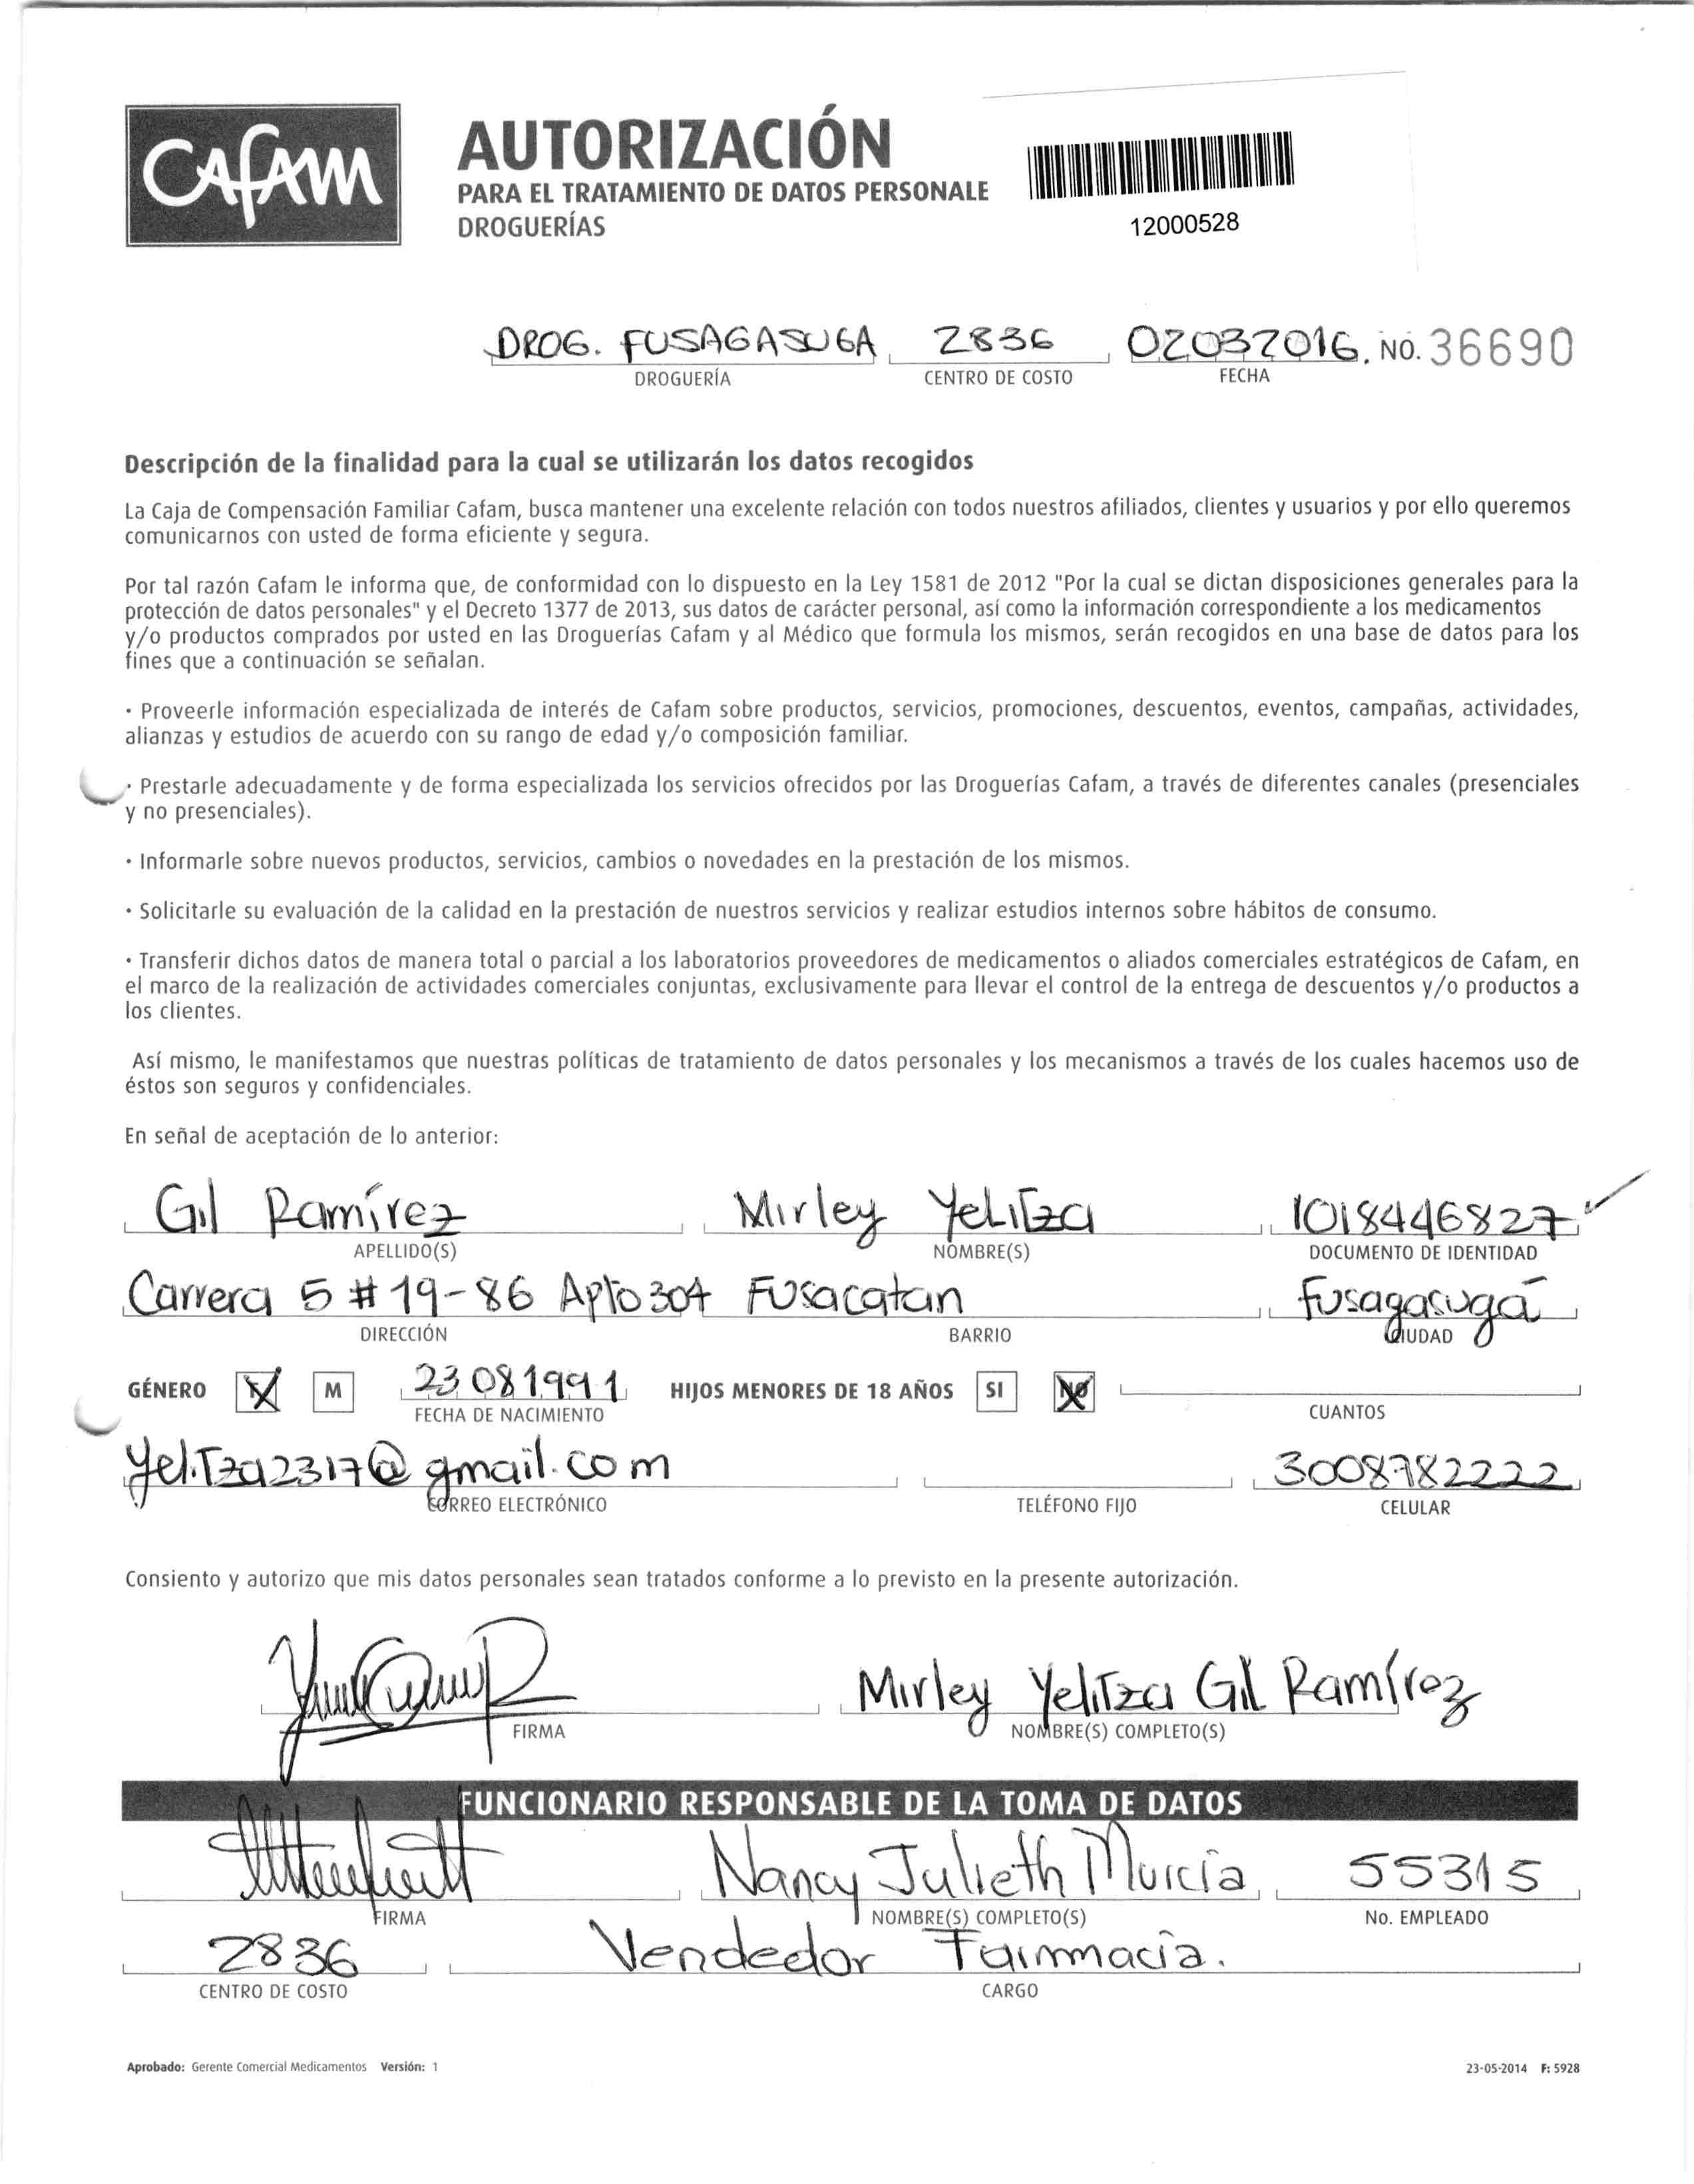 Cafam
AUTORIZACIÓN
PARA EL TRATAMIENTO DE DATOS PERSONALE
DROGUERÍAS
12000528
DROG. FUSAGASUGA 2836 02032016. NO. 36690
DROGUERÍA CENTRO DE COSTO FECHA
Descripción de la finalidad para la cual se utilizarán los datos recogidos
La Caja de Compensación Familiar Cafam, busca mantener una excelente relación con todos nuestros afiliados, clientes y usuarios y por ello queremos
comunicarnos con usted de forma eficiente y segura.
Por tal razón Cafam le informa que, de conformidad con lo dispuesto en la Ley 1581 de 2012 "Por la cual se dictan disposiciones generales para la
protección de datos personales" y el Decreto 1377 de 2013, sus datos de carácter personal, así como la información correspondiente a los medicamentos
y/o productos comprados por usted en las Droguerías Cafam y al Médico que formula los mismos, serán recogidos en una base de datos para los
fines que a continuación se señalan.
· Proveerle información especializada de interés de Cafam sobre productos, servicios, promociones, descuentos, eventos, campañas, actividades,
alianzas y estudios de acuerdo con su rango de edad y/o composición familiar.
· Prestarle adecuadamente y de forma especializada los servicios ofrecidos por las Droguerías Cafam, a través de diferentes canales (presenciales
y no presenciales).
· Informarle sobre nuevos productos, servicios, cambios o novedades en la prestación de los mismos.
· Solicitarle su evaluación de la calidad en la prestación de nuestros servicios y realizar estudios internos sobre hábitos de consumo.
· Transferir dichos datos de manera total o parcial a los laboratorios proveedores de medicamentos o aliados comerciales estratégicos de Cafam, en
el marco de la realización de actividades comerciales conjuntas, exclusivamente para llevar el control de la entrega de descuentos y/o productos a
los clientes.
Así mismo, le manifestamos que nuestras políticas de tratamiento de datos personales y los mecanismos a través de los cuales hacemos uso de
éstos son seguros y confidenciales.
En señal de aceptación de lo anterior:
Gil Ramírez Mirley Yelitza 1018446827
APELLIDO(S) NOMBRE(S) DOCUMENTO DE IDENTIDAD
Carrera 5 # 19-86 Apto 304 Fusacatan Fusagasugá
DIRECCIÓN BARRIO CIUDAD
GÉNERO M 23081991 HIJOS MENORES DE 18 AÑOS SI NO
FECHA DE NACIMIENTO CUANTOS
Yelitza2317@gmail.com 3008782222
CORREO ELECTRÓNICO TELÉFONO FIJO CELULAR
Consiento y autorizo que mis datos personales sean tratados conforme a lo previsto en la presente autorización.
Mirley Yelitza Gil Ramírez
FIRMA NOMBRE(S) COMPLETO(S)
FUNCIONARIO RESPONSABLE DE LA TOMA DE DATOS
Nancy Julieth Murcia 55315
FIRMA NOMBRE(S) COMPLETO(S) No. EMPLEADO
2836 Vendedor Farmacia.
CENTRO DE COSTO CARGO
Aprobado: Gerente Comercial Medicamentos Versión: 1 23-05-2014 F: 5928